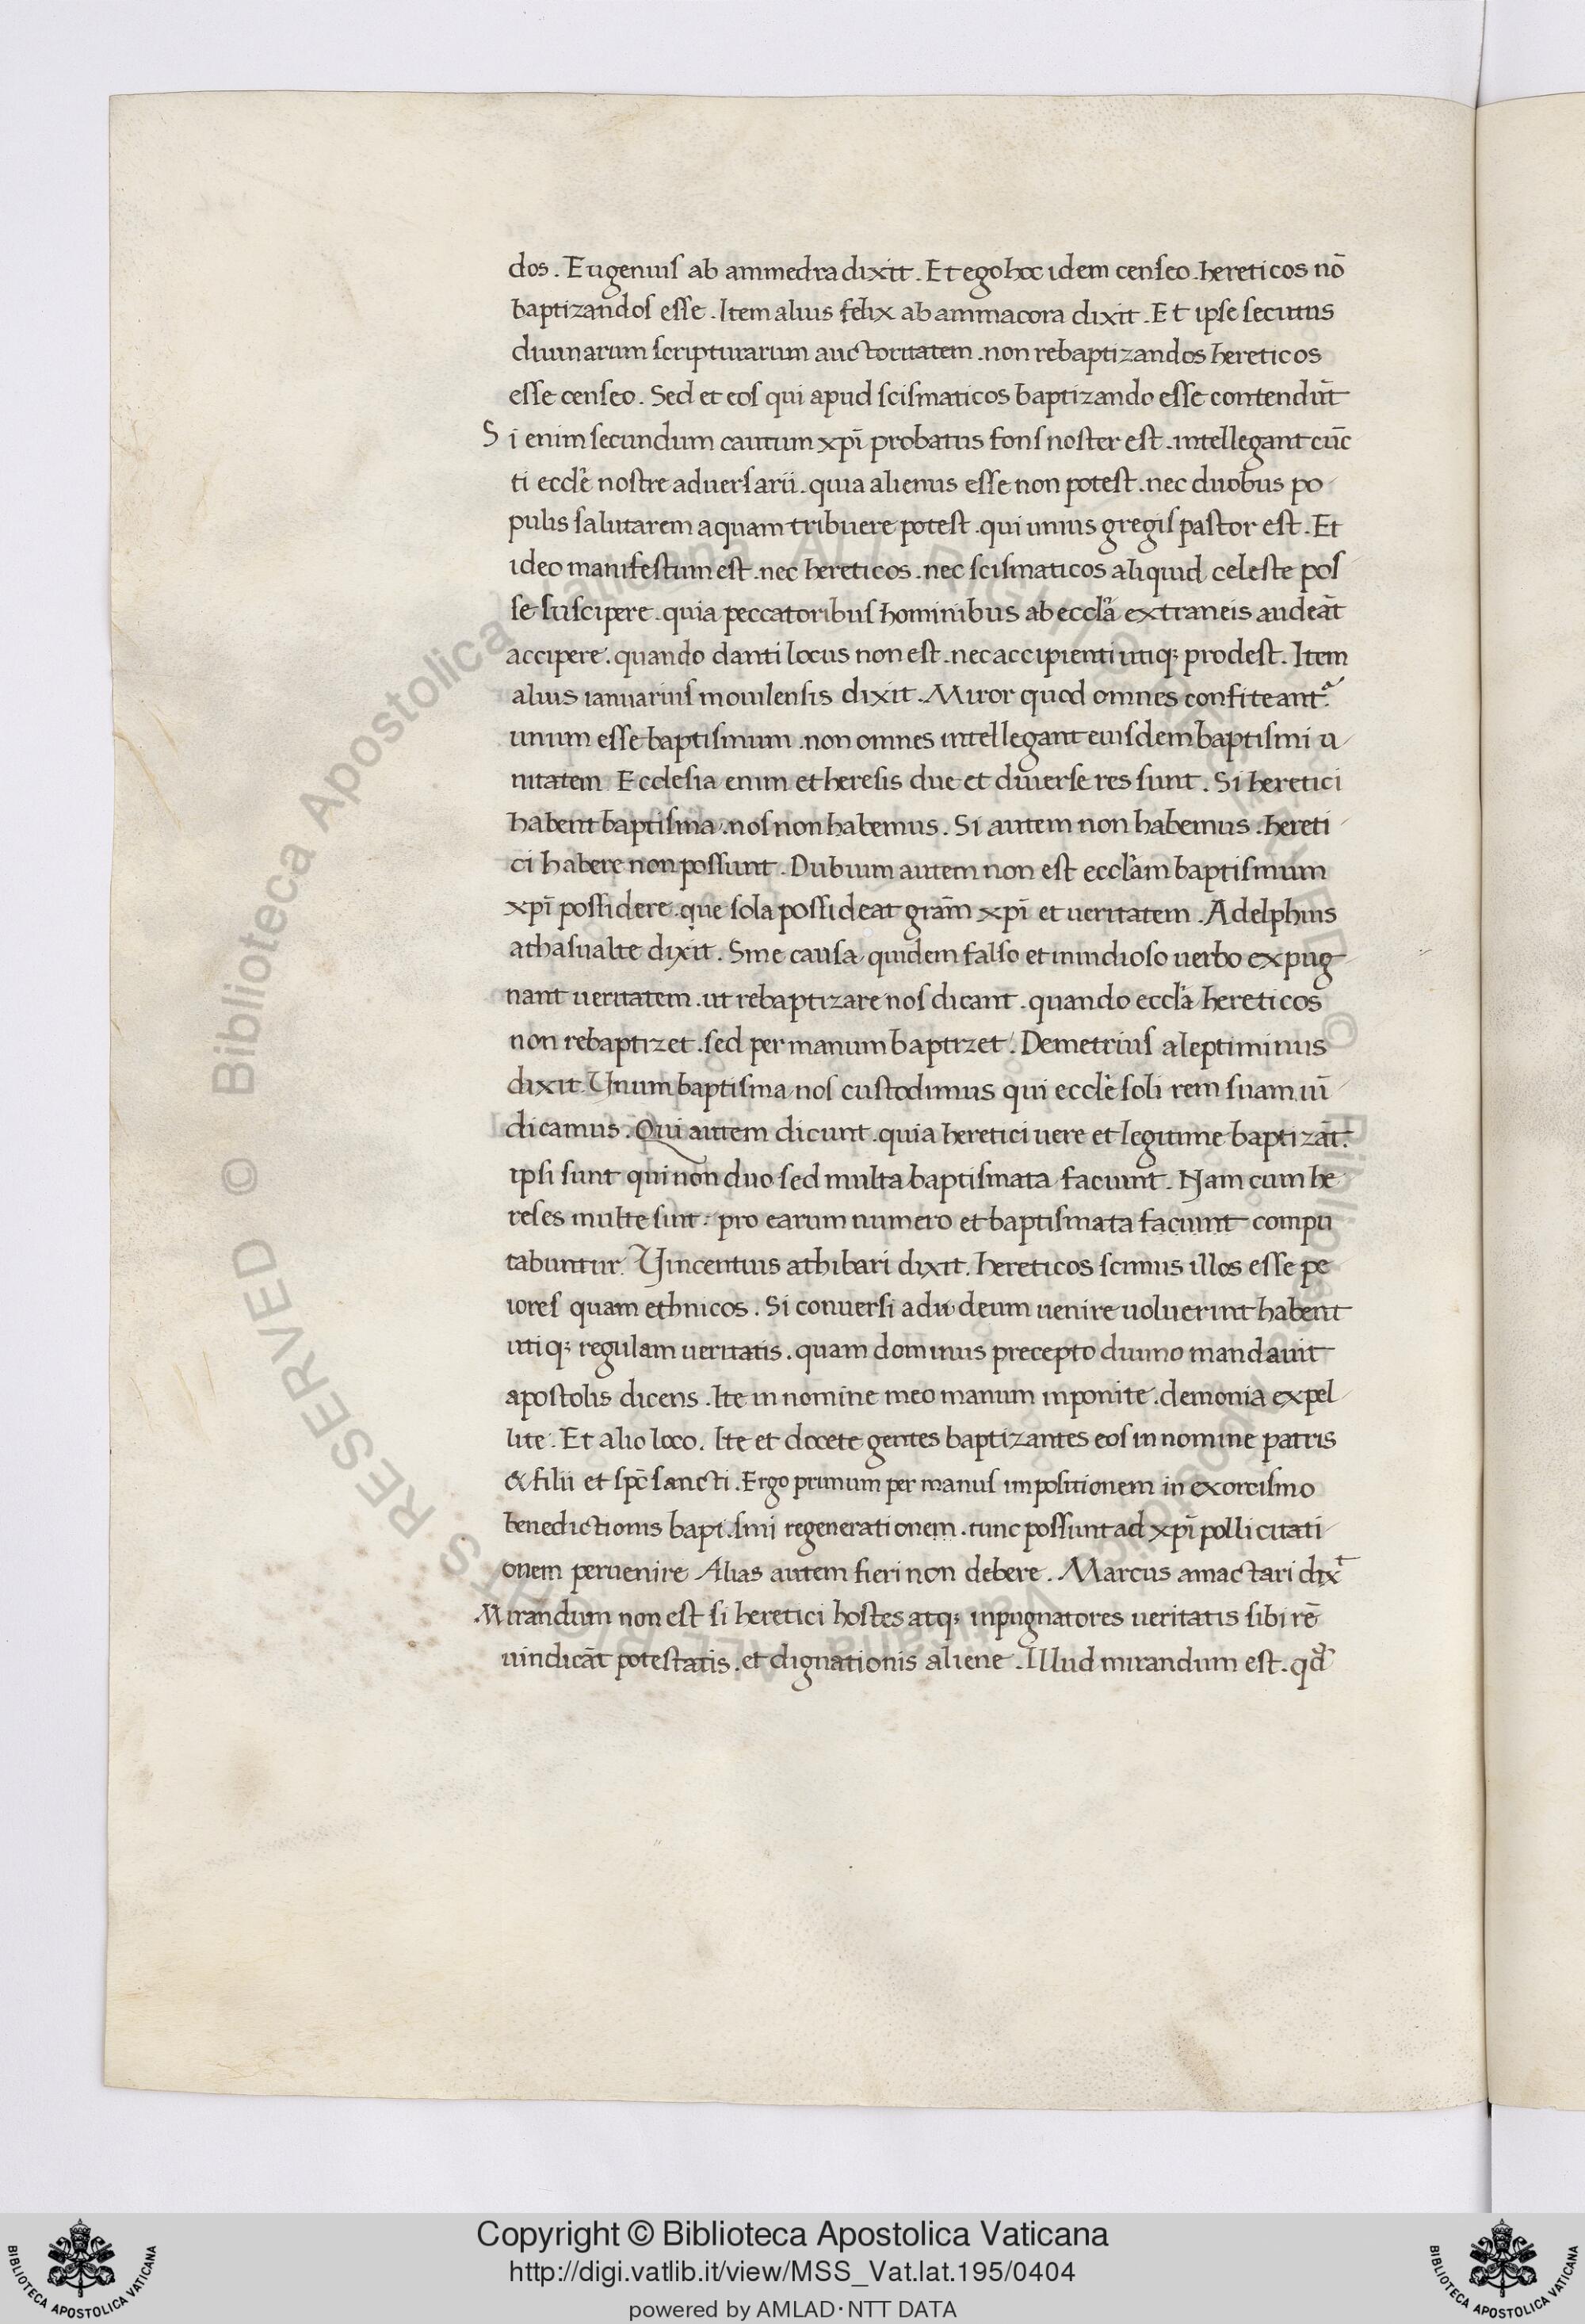 dos. Eugenius ab ammedra dixit. Et ego hoc idem censeo. hereticos nō
baptizandos esse. Item alius felix ab ammacora dixit. Et ipse secutus
diuinarum scripturarum auctoritatem. non rebaptizandos hereticos
esse censeo. Sed et eos qui apud scismaticos baptizando esse contendūt
Si enim secundum cautum xpī probatus fons noster est. intellegant cūc
ti eccle̅ nostre aduersarii. quia alienus esse non potest. nec duobus po
pulis salutarem aquam tribuere potest. qui unius gregis pastor est. Et
ideo manifestum est. nec hereticos. nec scismaticos aliquid celeste pos
se suscipere. quia peccatoribus hominibus ab eccla̅ extraneis audeāt
accipere. quando danti locus non est. nec accipienti utiq; prodest. Item
alius ianuarius mouilensis dixit. Miror quod omnes confiteant᷑
unum esse baptismum. non omnes intellegant eiusdem baptismi u
nitatem Ecclesia enim et heresis due et diuerse res sunt. Si heretici
habent baptisma. nos non habemus. Si autem non habemus. hereti
ci habere non possunt. Dubium autem non est eccla̅m baptismum
xpī possidere. que sola possideat gra̅m xpī et ueritatem. Adelphius
athasualte dixit. Sine causa quidem falso et inuidioso uerbo expug
nant ueritatem. ut rebaptizare nos dicant. quando eccla̅ hereticos
non rebaptizet. sed per manum baptizet. Demetrius aleptiminus
dixit. Unum baptisma nos custodimus qui eccle̅ soli rem suam uī
dicamus. Qui autem dicunt. quia heretici uere et legitime baptizāt.
ipsi sunt qui non duo sed multa baptismata faciunt. Nam cum he
reses multe sint. pro earum numero et baptismata faciunt compu
tabuntur. Vincentius athibari dixit. hereticos scimus illos esse pe
iores quam ethnicos. Si conuersi adu deum uenire uoluerint habent
utiq; regulam ueritatis. quam dominus precepto diuino mandauit
apostolis dicens. Ite in nomine meo manum inponite. demonia expel
lite. Et alio loco. Ite et docete gentes baptizantes eos in nomine patris
& filii et spc̄ sancti. Ergo primum per manus impositionem in exorcismo
benedictionis bapt.smi regenerationem. tunc possunt ad xpī pollicitati
onem peruenire Alias autem fieri non debere. Marcus amactari dixͭ
Mirandum non est si heretici hostes atq; inpugnatores ueritatis sibi rē
uindicāt potestatis. et dignationis aliene. Illud mirandum est. qd̕
Copyright © Biblioteca Apostolica Vaticana
http://digi.vatlib.it/view/MSS_Vat.lat.195/0404
powered by AMLAD·NTT DATA
BIBLIOTECA APOSTOLICA VATICANA
BIBLIOTECA APOSTOLICA VATICANA